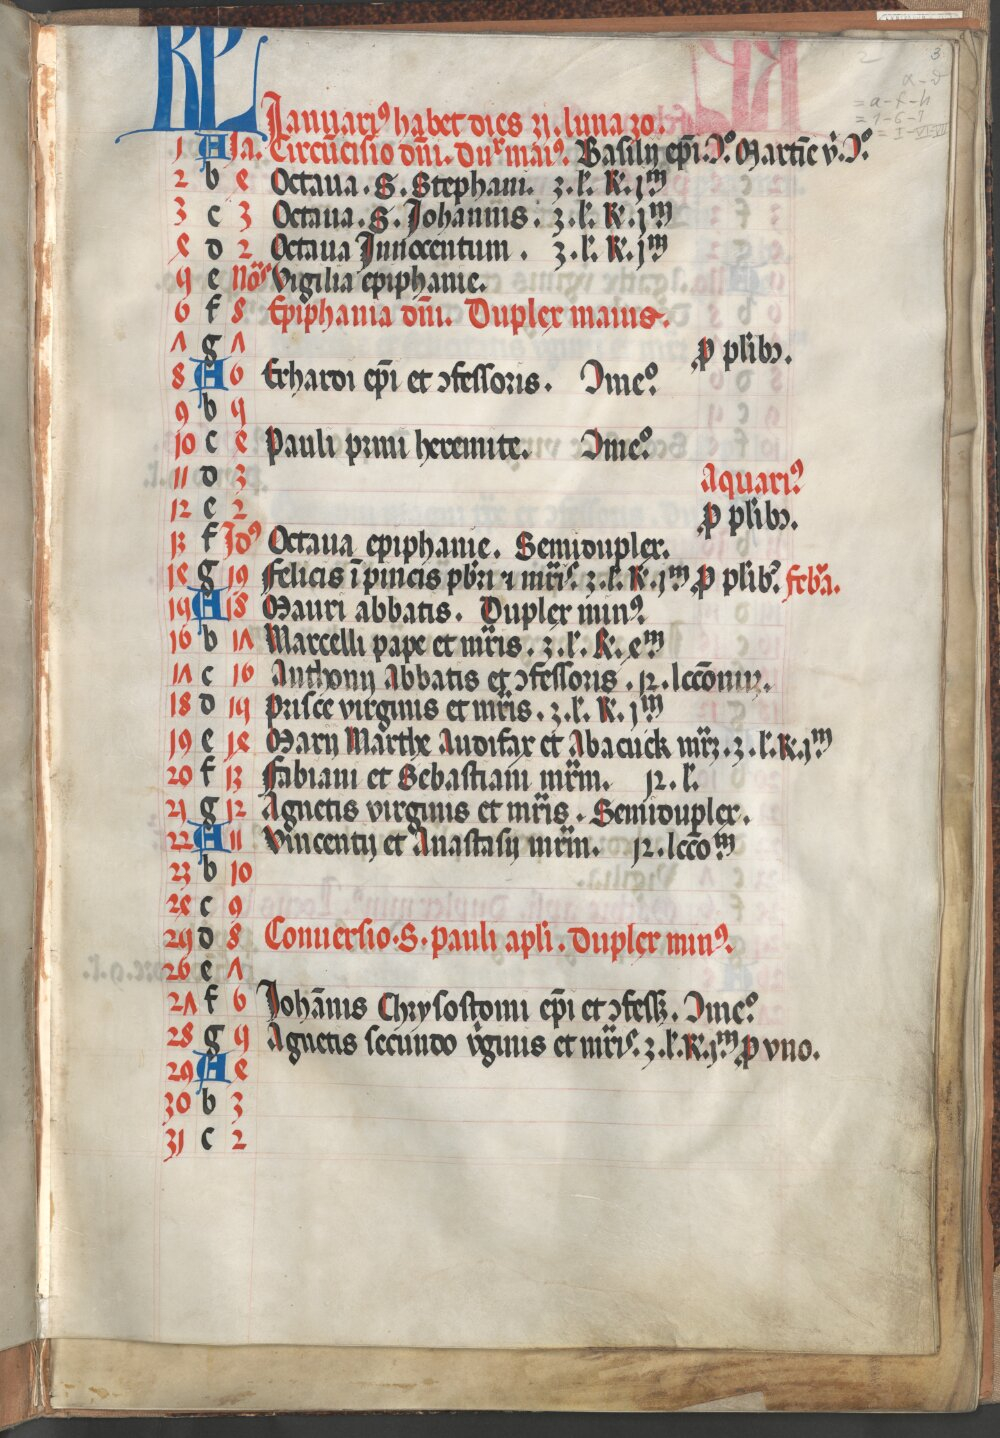 KL
Januari⁹ habet dies 31. luna 30.
1 A Ja. Circūcisio dn̄i. Du.ͬ mai⁹. Basilij ep̄i. Ɔ.⁹ Martīe v̄. Ɔ.⁹
2 b e Octaua. S. Stephani. 3. l'. R. 1ᵐ
3 c 3 Octaua. S. Johannis. 3. l'. R. 1ᵐ
e d 2 Octaua Innocentum. 3. l'. R. 1ᵐ
q e Nōs Vigilia epiphanie.
6 f 8 Epiphania dn̄i. Duplex maius.
ʌ g ʌ ꝓ plib⁹.
8 A 6 Erhardi ep̄i et ↄfessoris. Ɔme⁹.
9 b q
10 c e Pauli primi heremite. Ɔme⁹.
11 d 3 Aquari⁹
12 e 2 ꝓ plib⁹.
13 f Jd⁹ Octaua epiphanie. Semiduplex.
1e g 19 Felicis ī pincis pb̄ri ⁊ mr̄is. 3. l'. R. 1ᵐ ꝓ plib⁹. Febr̄a.
1q A 18 Mauri abbatis. Duplex min⁹.
16 b 1ʌ Marcelli pape et mr̄is. 3. l'. R. eᵐ
1ʌ c 16 Anthonij Abbatis et ↄfessoris. 12. lccōnū.
18 d 1q Prisce virginis et mr̄is. 3. l'. R. 1ᵐ
19 e 1e Marij Marthe Audifax et Abacuck mr̄ꝫ. 3. l'. R. 1ᵐ
20 f 13 Fabiani et Sebastiani mr̄m. 12. l'.
21 g 12 Agnetis virginis et mr̄is. Semiduplex.
22 A 11 Vincentij et Anastasij mr̄m. 12. lccōᵐ
23 b 10
2e c 9
2q d 8 Conuersio. S. Pauli apl̄i. Duplex min⁹.
26 e ʌ
2ʌ f 6 Johān̄is Chrysostomi ep̄i et ↄfess̄. Ɔme⁹.
28 g q Agnetis secundo v̄ginis et mr̄is. 3. l'. R. 1ᵐ ꝓ vno.
29 A e
30 b 3
31 c 2
3
a-d
= a-f-h
= 1-6-7
= I-VI-VII